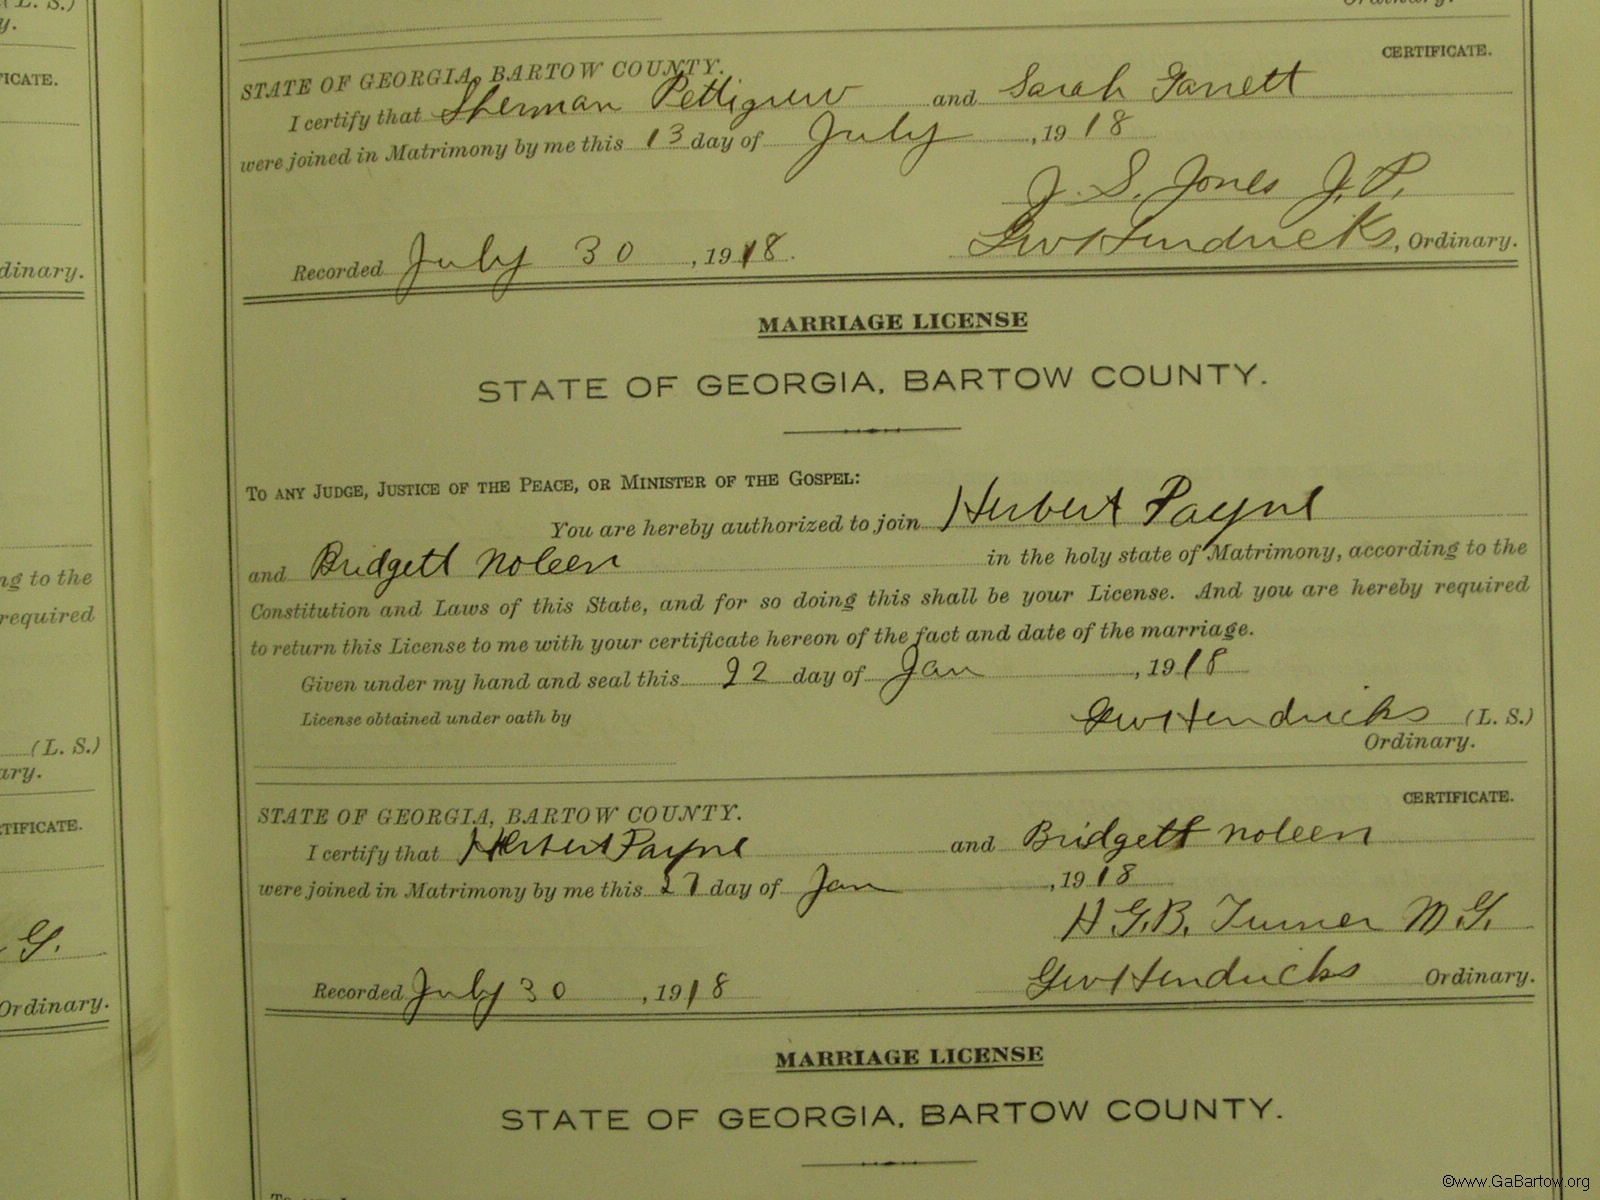 (L. S.)
y.
Ordinary.
CERTIFICATE.
STATE OF GEORGIA, BARTOW COUNTY.
I certify that Sherman Pettigrew and Sarah Garrett
were joined in Matrimony by me this 13 day of July , 1918
J. S. Jones J. P.
Recorded July 30 , 1918. Gw Hendricks, Ordinary.
MARRIAGE LICENSE
STATE OF GEORGIA, BARTOW COUNTY.
TO ANY JUDGE, JUSTICE OF THE PEACE, OR MINISTER OF THE GOSPEL:
You are hereby authorized to join Herbert Payne
and Bridgett Noleen in the holy state of Matrimony, according to the
Constitution and Laws of this State, and for so doing this shall be your License. And you are hereby required
to return this License to me with your certificate hereon of the fact and date of the marriage.
Given under my hand and seal this 22 day of Jan , 1918
License obtained under oath by Gw Hendricks (L. S.)
Ordinary.
CERTIFICATE.
STATE OF GEORGIA, BARTOW COUNTY.
I certify that Herbert Payne and Bridgett Noleen
were joined in Matrimony by me this 27 day of Jan , 1918
H. G. B. Turner M. G.
Recorded July 30 , 1918 Gw Hendricks Ordinary.
MARRIAGE LICENSE
STATE OF GEORGIA, BARTOW COUNTY.
IFICATE.
dinary.
ng to the
required
(L. S.)
ary.
TIFICATE.
G.
Ordinary.
©www.GaBartow.org